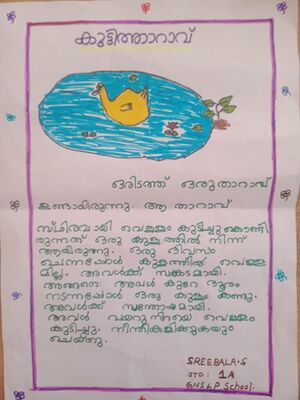 കുട്ടിത്താറാവ്
ഒരിടത്ത് ഒരു താറാവ്
ഉണ്ടായിരുന്നു. ആ താറാവ്
സ്ഥിരമായി വെള്ളം കുടിച്ചുകൊണ്ടി
രുന്നത് ഒരു കുളത്തിൽ നിന്ന്
ആയിരുന്നു. ഒരു ദിവസം
ചെന്നപ്പോൾ കുളത്തിൽ വെള്ള
മില്ല. അവൾക്ക് സങ്കടമായി.
അങ്ങനെ അവൾ കുറേ ദൂരം
നടന്നപ്പോൾ ഒരു കുളം കണ്ടു.
അവൾക്ക് സന്തോഷമായി.
അവൾ വയറുനിറയെ വെള്ളം
കുടിച്ചു. നീന്തികളിക്കുകയും
ചെയ്തു.
SREEBALA·S
STD : 1A
GNSLP School.